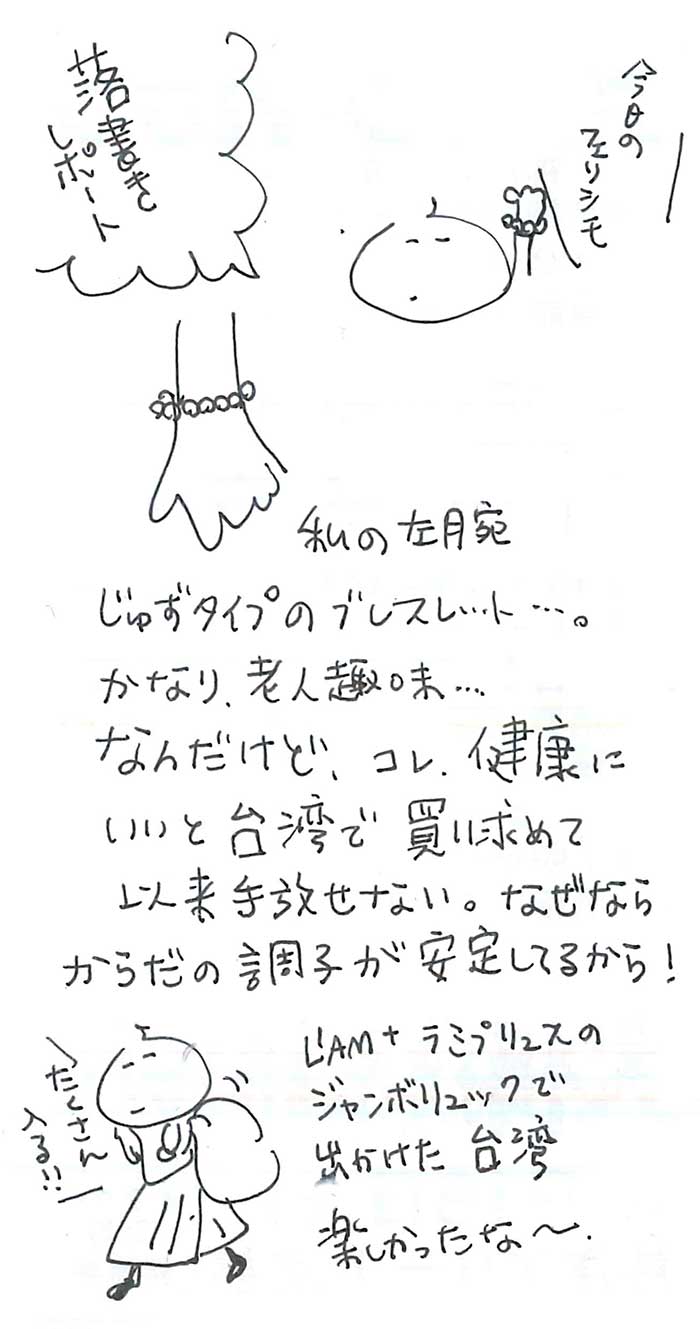 落書き
レポート
今日の
フェリシモ
私の左腕
じゅずタイプのブレスレット…。
かなり、老人趣味…
なんだけど、コレ、健康に
いいと台湾で買い求めて
以来手放せない。なぜなら
からだの調子が安定してるから！
たくさん
入る!!
L'AM+ ラミプリュスの
ジャンボリュックで
出かけた台湾
楽しかったな〜.